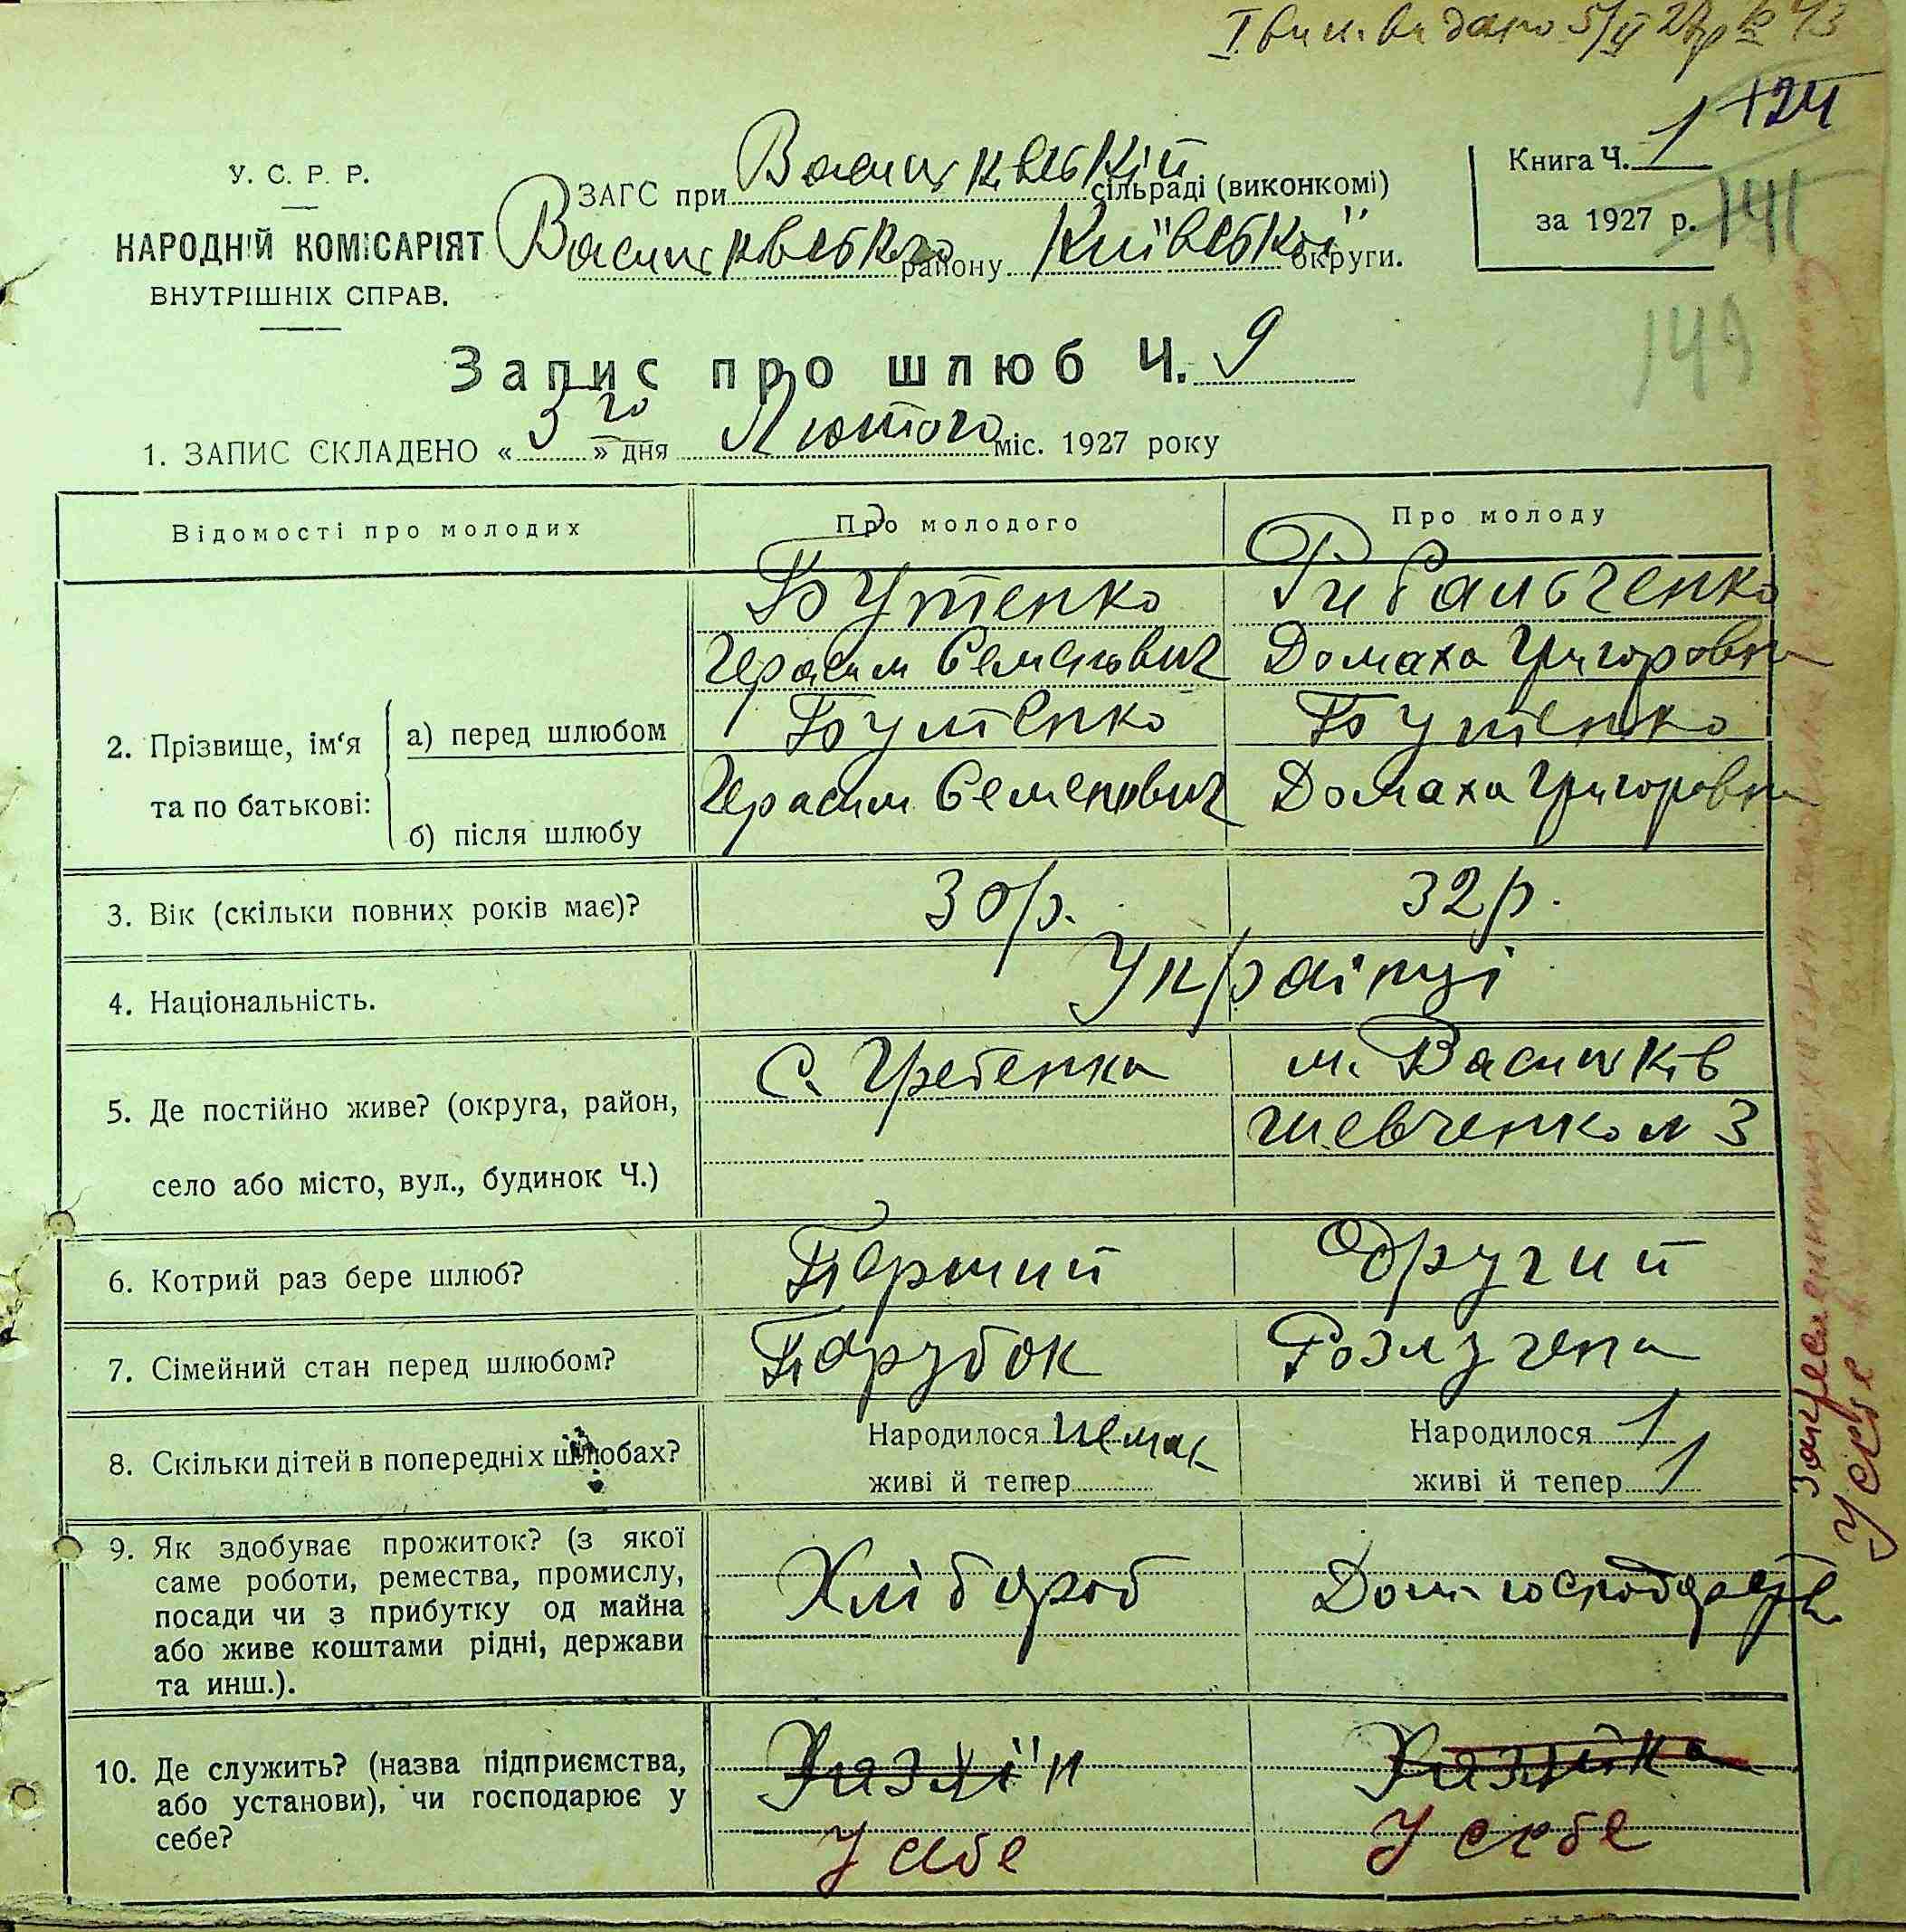 124
У. С. Р. Р.
НАРОДНІЙ КОМІСАРІЯТ
ВНУТРІШНІХ СПРАВ.
ЗАГС при Васильківській сільраді (виконкомі)
Васильківського району Київської округи.
Книга Ч. 1
за 1927 р.
141
149
Запис про шлюб Ч. 9
1. ЗАПИС СКЛАДЕНО « 3го » дня Лютого міс. 1927 року
Відомості про молодих
Про молодого
Про молоду
2. Прізвище, ім‘я та по батькові:
а) перед шлюбом
Бутенко
Герасим Семенович
Рибальченко
Домаха Григоровна
б) після шлюбу
Бутенко
Герасим Семенович
Бутенко
Домаха Григоровна
3. Вік (скільки повних років має)?
30 р.
32 р.
4. Національність.
Українці
5. Де постійно живе? (округа, район,
село або місто, вул., будинок Ч.)
с. Гребенка
м. Васильків
Шевченко № 3
6. Котрий раз бере шлюб?
Перший
Другий
7. Сімейний стан перед шлюбом?
Парубок
Розлучена
8. Скільки дітей в попередніх шлюбах?
Народилося немає
живі й тепер
Народилося 1
живі й тепер 1
9. Як здобуває прожиток? (з якої
саме роботи, ремества, промислу,
посади чи з прибутку од майна
або живе коштами рідні, держави
та инш.).
Хлібороб
10. Де служить? (назва підприємства,
або установи), чи господарює у
себе?
Хазяїн
У себе
Хазяйка
У себе